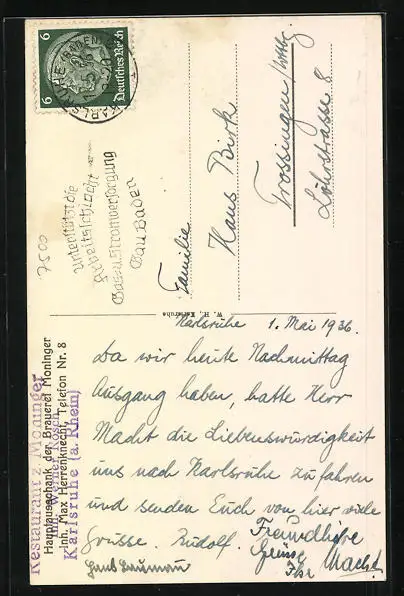 6 Deutsches Reich 6
KARLSRUHE (BADEN)
Unterstützt die
Arbeitsschlacht
Gas u. Stromversorgung
Gau Baden
7500
Familie
Hans Birk
Trossingen/Wttbg
Löhrstrasse 8
W. H., Karlsruhe
Karlsruhe 1. Mai 1936.
Da wir heute Nachmittag
Ausgang haben, hatte Herr
Macht die Liebenswürdigkeit
uns nach Karlsruhe zu fahren
und senden Euch von hier viele
Grüsse. Rudolf.
Freundliche
Grüsse
Ihr Macht
Restaurant z. Moninger
Hauptausschank der Brauerei Moninger
Inh. Max Herrenknecht, Telefon Nr. 8
Karlsruhe (a. Rhein)